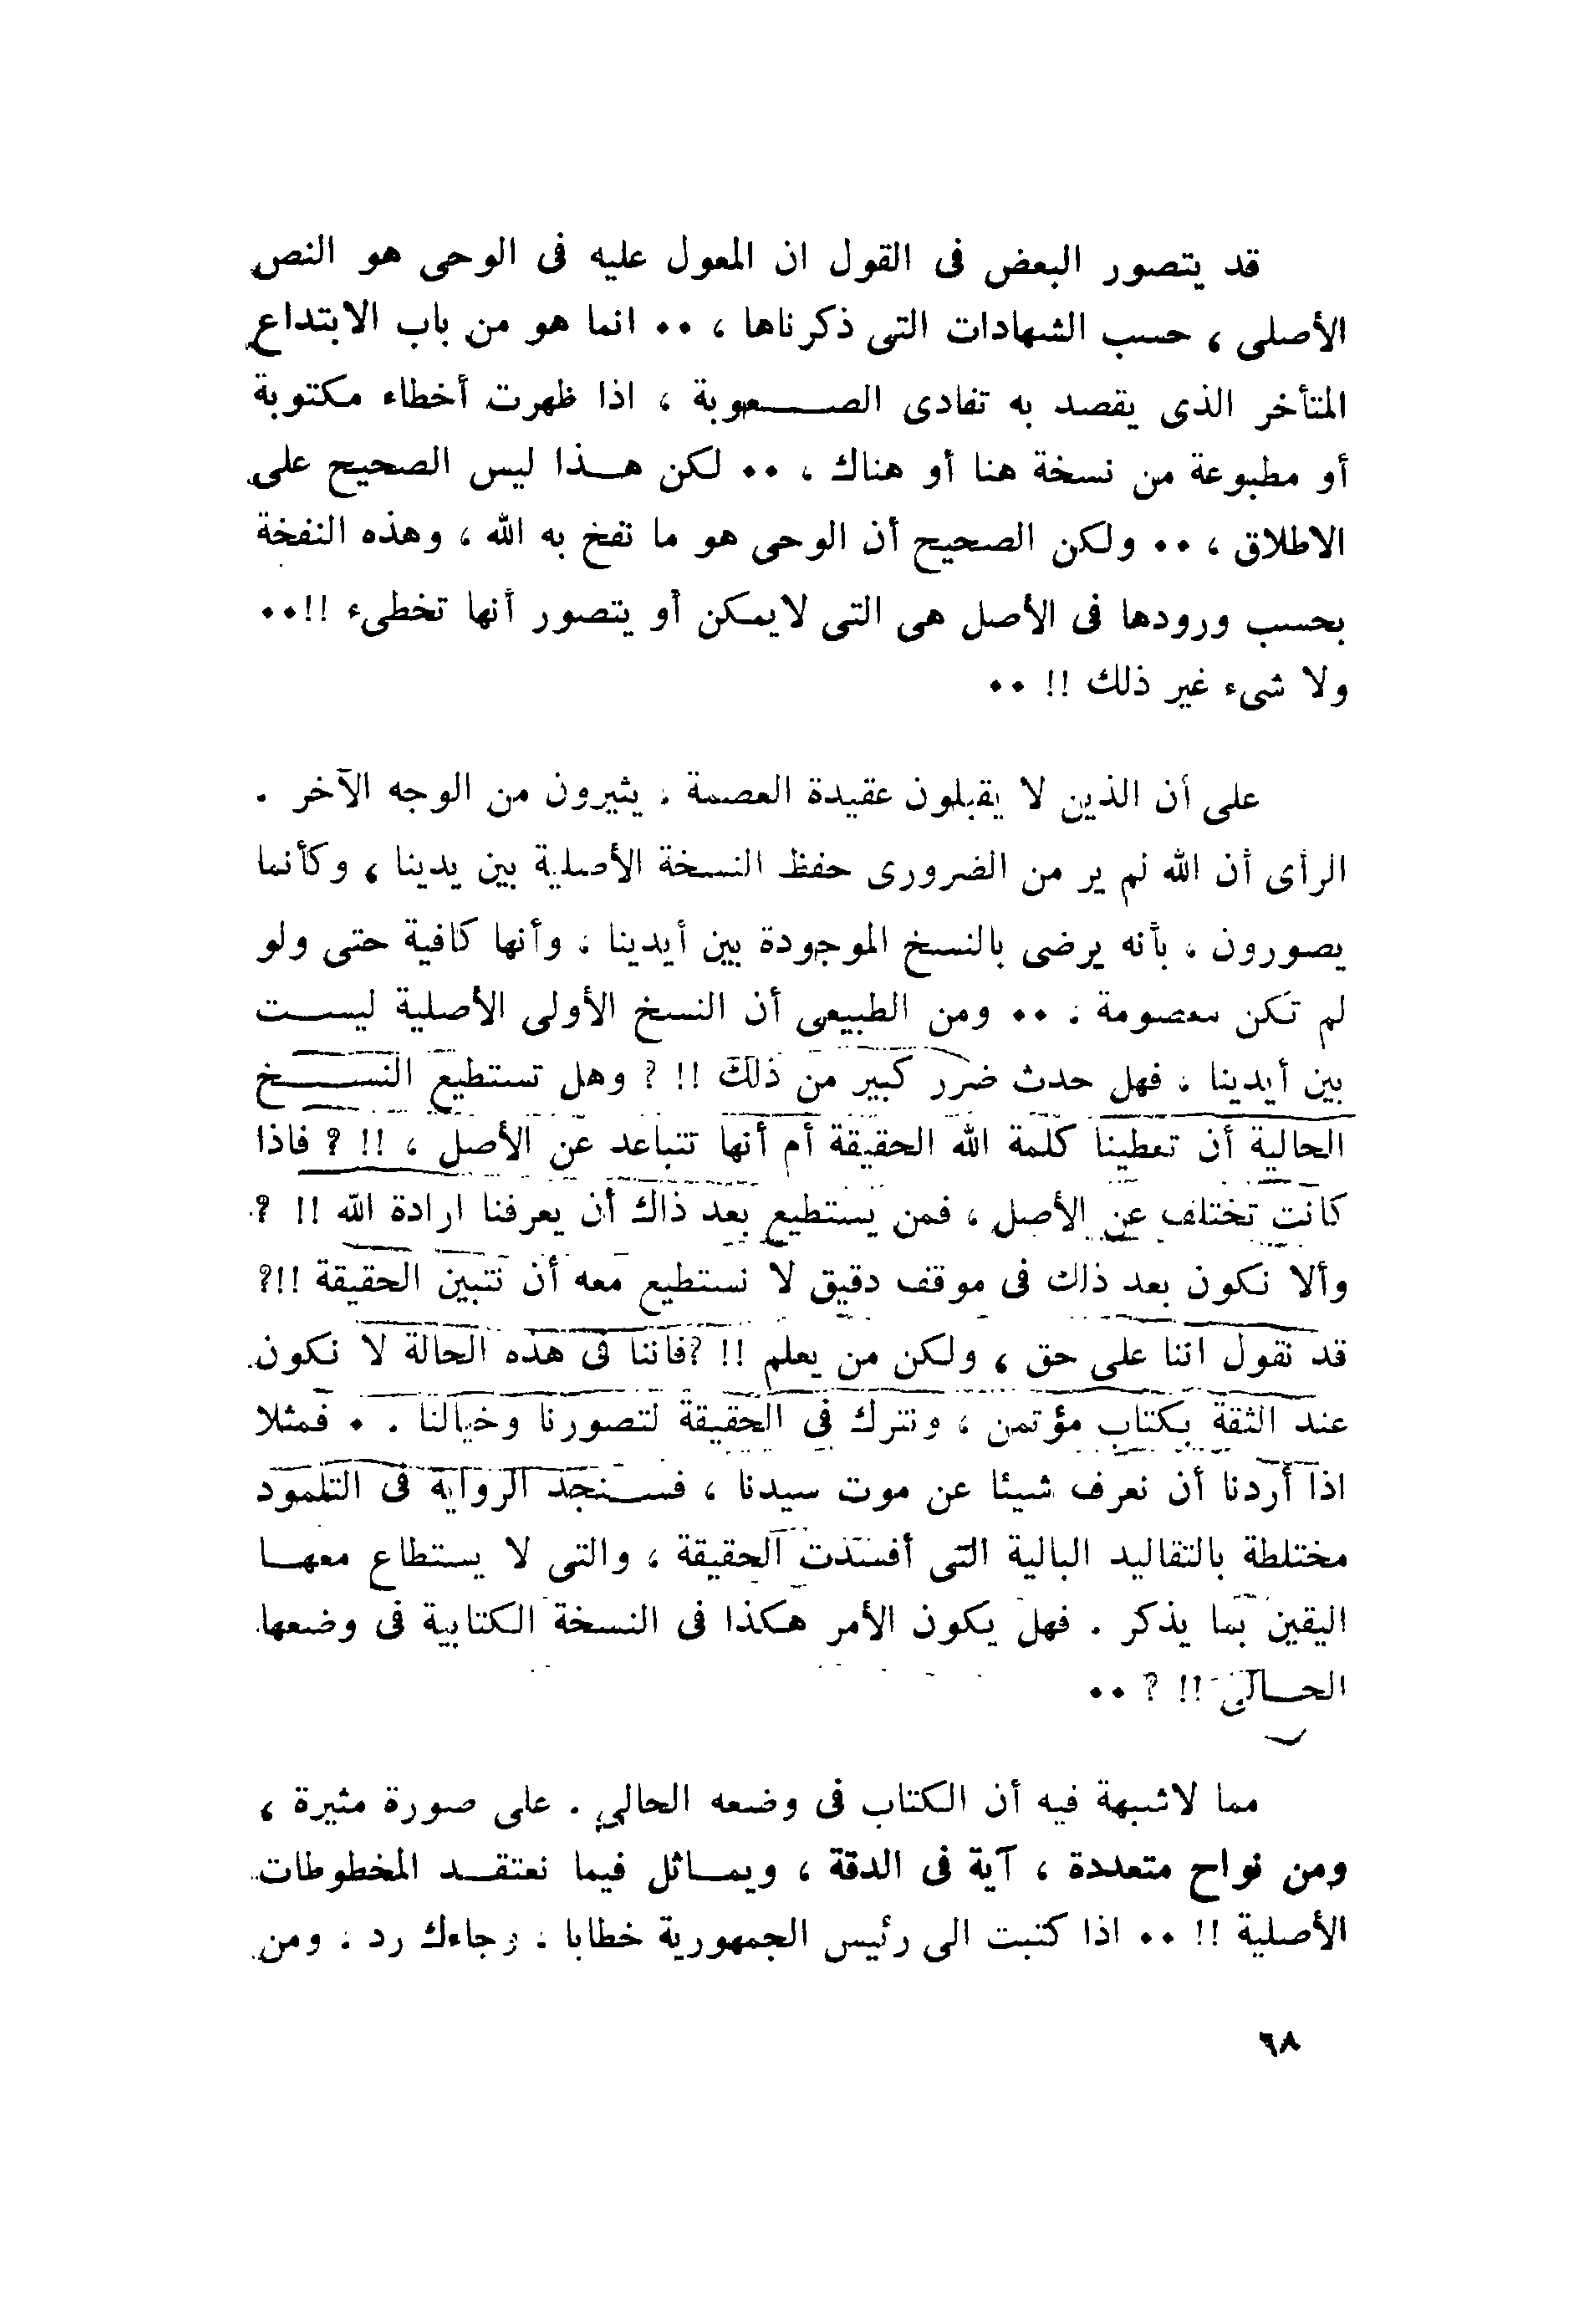 قد يتصور البعض فى القول ان المعول عليه فى الوحى هو النص
الأصلى ، حسب الشهادات التى ذكرناها ، ٠٠ انما هو من باب الابتداع
المتأخر الذى يقصد به تفادى الصـــعوبة ، اذا ظهرت أخطاء مكتوبة
أو مطبوعة من نسخة هنا أو هناك ، ٠٠ لكن هـــذا ليس الصحيح على
الاطلاق ، ٠٠ ولكن الصحيح أن الوحى هو ما نفخ به الله ، وهذه النفخة
بحسب ورودها فى الأصل هى التى لايمكن أو يتصور أنها تخطىء !!٠٠
ولا شىء غير ذلك !! ٠٠
على أن الذين لا يقبلون عقيدة العصمة ، يثيرون من الوجه الآخر .
الرأى أن الله لم ير من الضرورى حفظ النسخة الأصلية بين يدينا ، وكأنما
يصورون ، بأنه يرضى بالنسخ الموجودة بين أيدينا ، وأنها كافية حتى ولو
لم تكن معصومة ، ٠٠ ومن الطبيعى أن النسخ الأولى الأصلية ليســـت
بين أيدينا ، فهل حدث ضرر كبير من ذلك !! ? وهل تستطيع النســـخ
الحالية أن تعطينا كلمة الله الحقيقة أم أنها تتباعد عن الأصل ، !! ? فاذا
كانت تختلف عن الأصل ، فمن يستطيع بعد ذاك أن يعرفنا ارادة الله !! ?
وألا نكون بعد ذلك فى موقف دقيق لا نستطيع معه أن نتبين الحقيقة !!?
قد نقول اننا على حق ، ولكن من يعلم !! ?فاننا فى هذه الحالة لا نكون
عند الثقة بكتاب مؤتمن ، ونترك فى الحقيقة لتصورنا وخيالنا . ٠ فمثلا
اذا أردنا أن نعرف شيئا عن موت سيدنا ، فســـنجد الرواية فى التلمود
مختلطة بالتقاليد البالية التى أفسدت الحقيقة ، والتى لا يستطاع معهـــا
اليقين بما يذكر . فهل يكون الأمر هكذا فى النسخة الكتابية فى وضعها
الحـــالى !! ? ٠٠
مما لاشبهة فيه أن الكتاب فى وضعه الحالى . على صورة مثيرة ،
ومن نواح متعددة ، آية فى الدقة ، ويمـــاثل فيما نعتقـــد المخطوطات
الأصلية !! ٠٠ اذا كتبت الى رئيس الجمهورية خطابا ، وجاءك رد ، ومن
٦٨